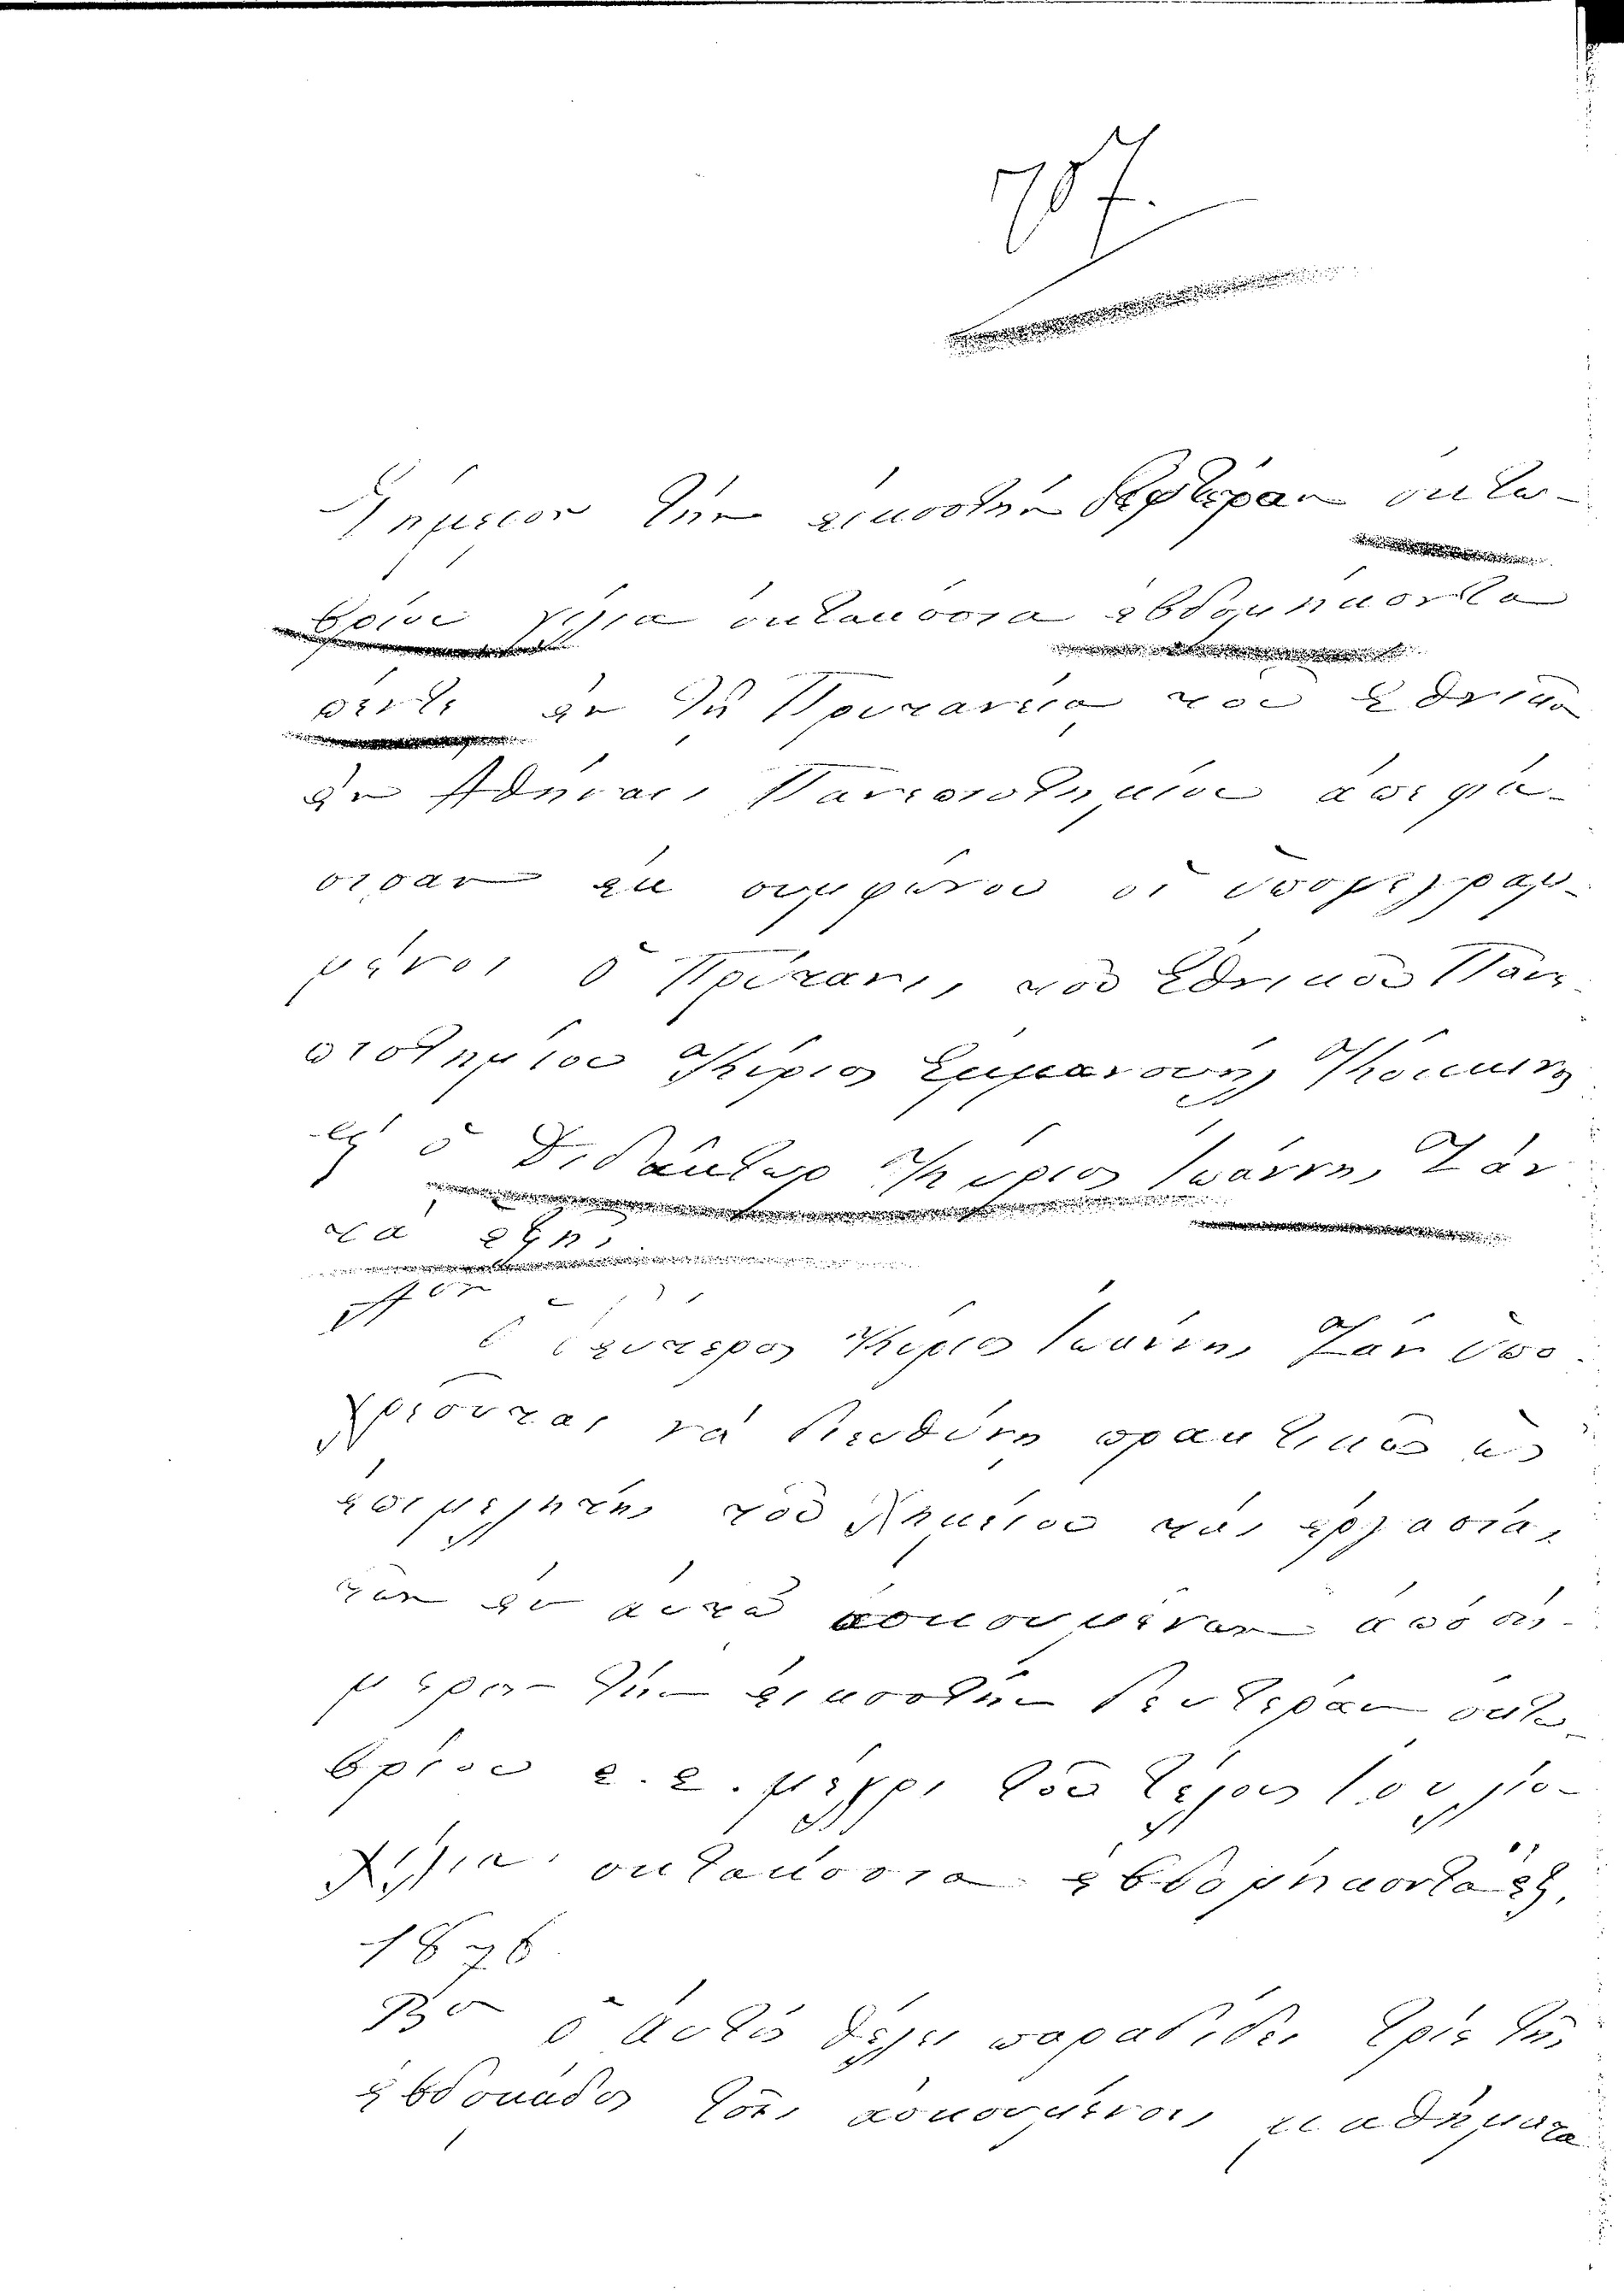 787.
Σήμερον τὴν εἰκοστὴν δευτέραν ὀκτω-
βρίου χίλια ὀκτακόσια ἑβδομήκοντα
πέντε ἐν τῇ Πρυτανείᾳ τοῦ Ἐθνικοῦ
ἐν Ἀθήναις Πανεπιστημίου ἀπεφά-
σισαν ἐκ συμφώνου οἱ ὑπογεγραμ-
μένοι ὁ Πρύτανις τοῦ Ἐθνικοῦ Πανε
πιστημίου Κύριος Ἐμμανουὴλ Κόκκινος
καὶ ὁ Διδάκτωρ Κύριος Ἰωάννης Ζαν
τὰ ἑξῆς.
Αον
ὁ δεύτερος Κύριος Ἰωάννης Ζαν ὑπο-
χρεοῦται νὰ διευθύνῃ πρακτικῶς ὡς
ἐπιμελητὴς τοῦ Χημείου τὰς ἐργασίας
τῶν ἐν αὐτῷ ἀσκουμένων ἀπὸ σή-
μερον τὴν εἰκοστὴν δευτέραν ὀκτω-
βρίου ἐ. ἔ. μέχρι τοῦ τέλους Ἰουλίου
χίλια ὀκτακόσια ἑβδομήκοντα ἕξ.
1876
Βον ὁ Αὐτὸς θέλει παραδίδει τρὶς τῆς
ἑβδομάδος τοῖς ἀσκουμένοις μαθήματα